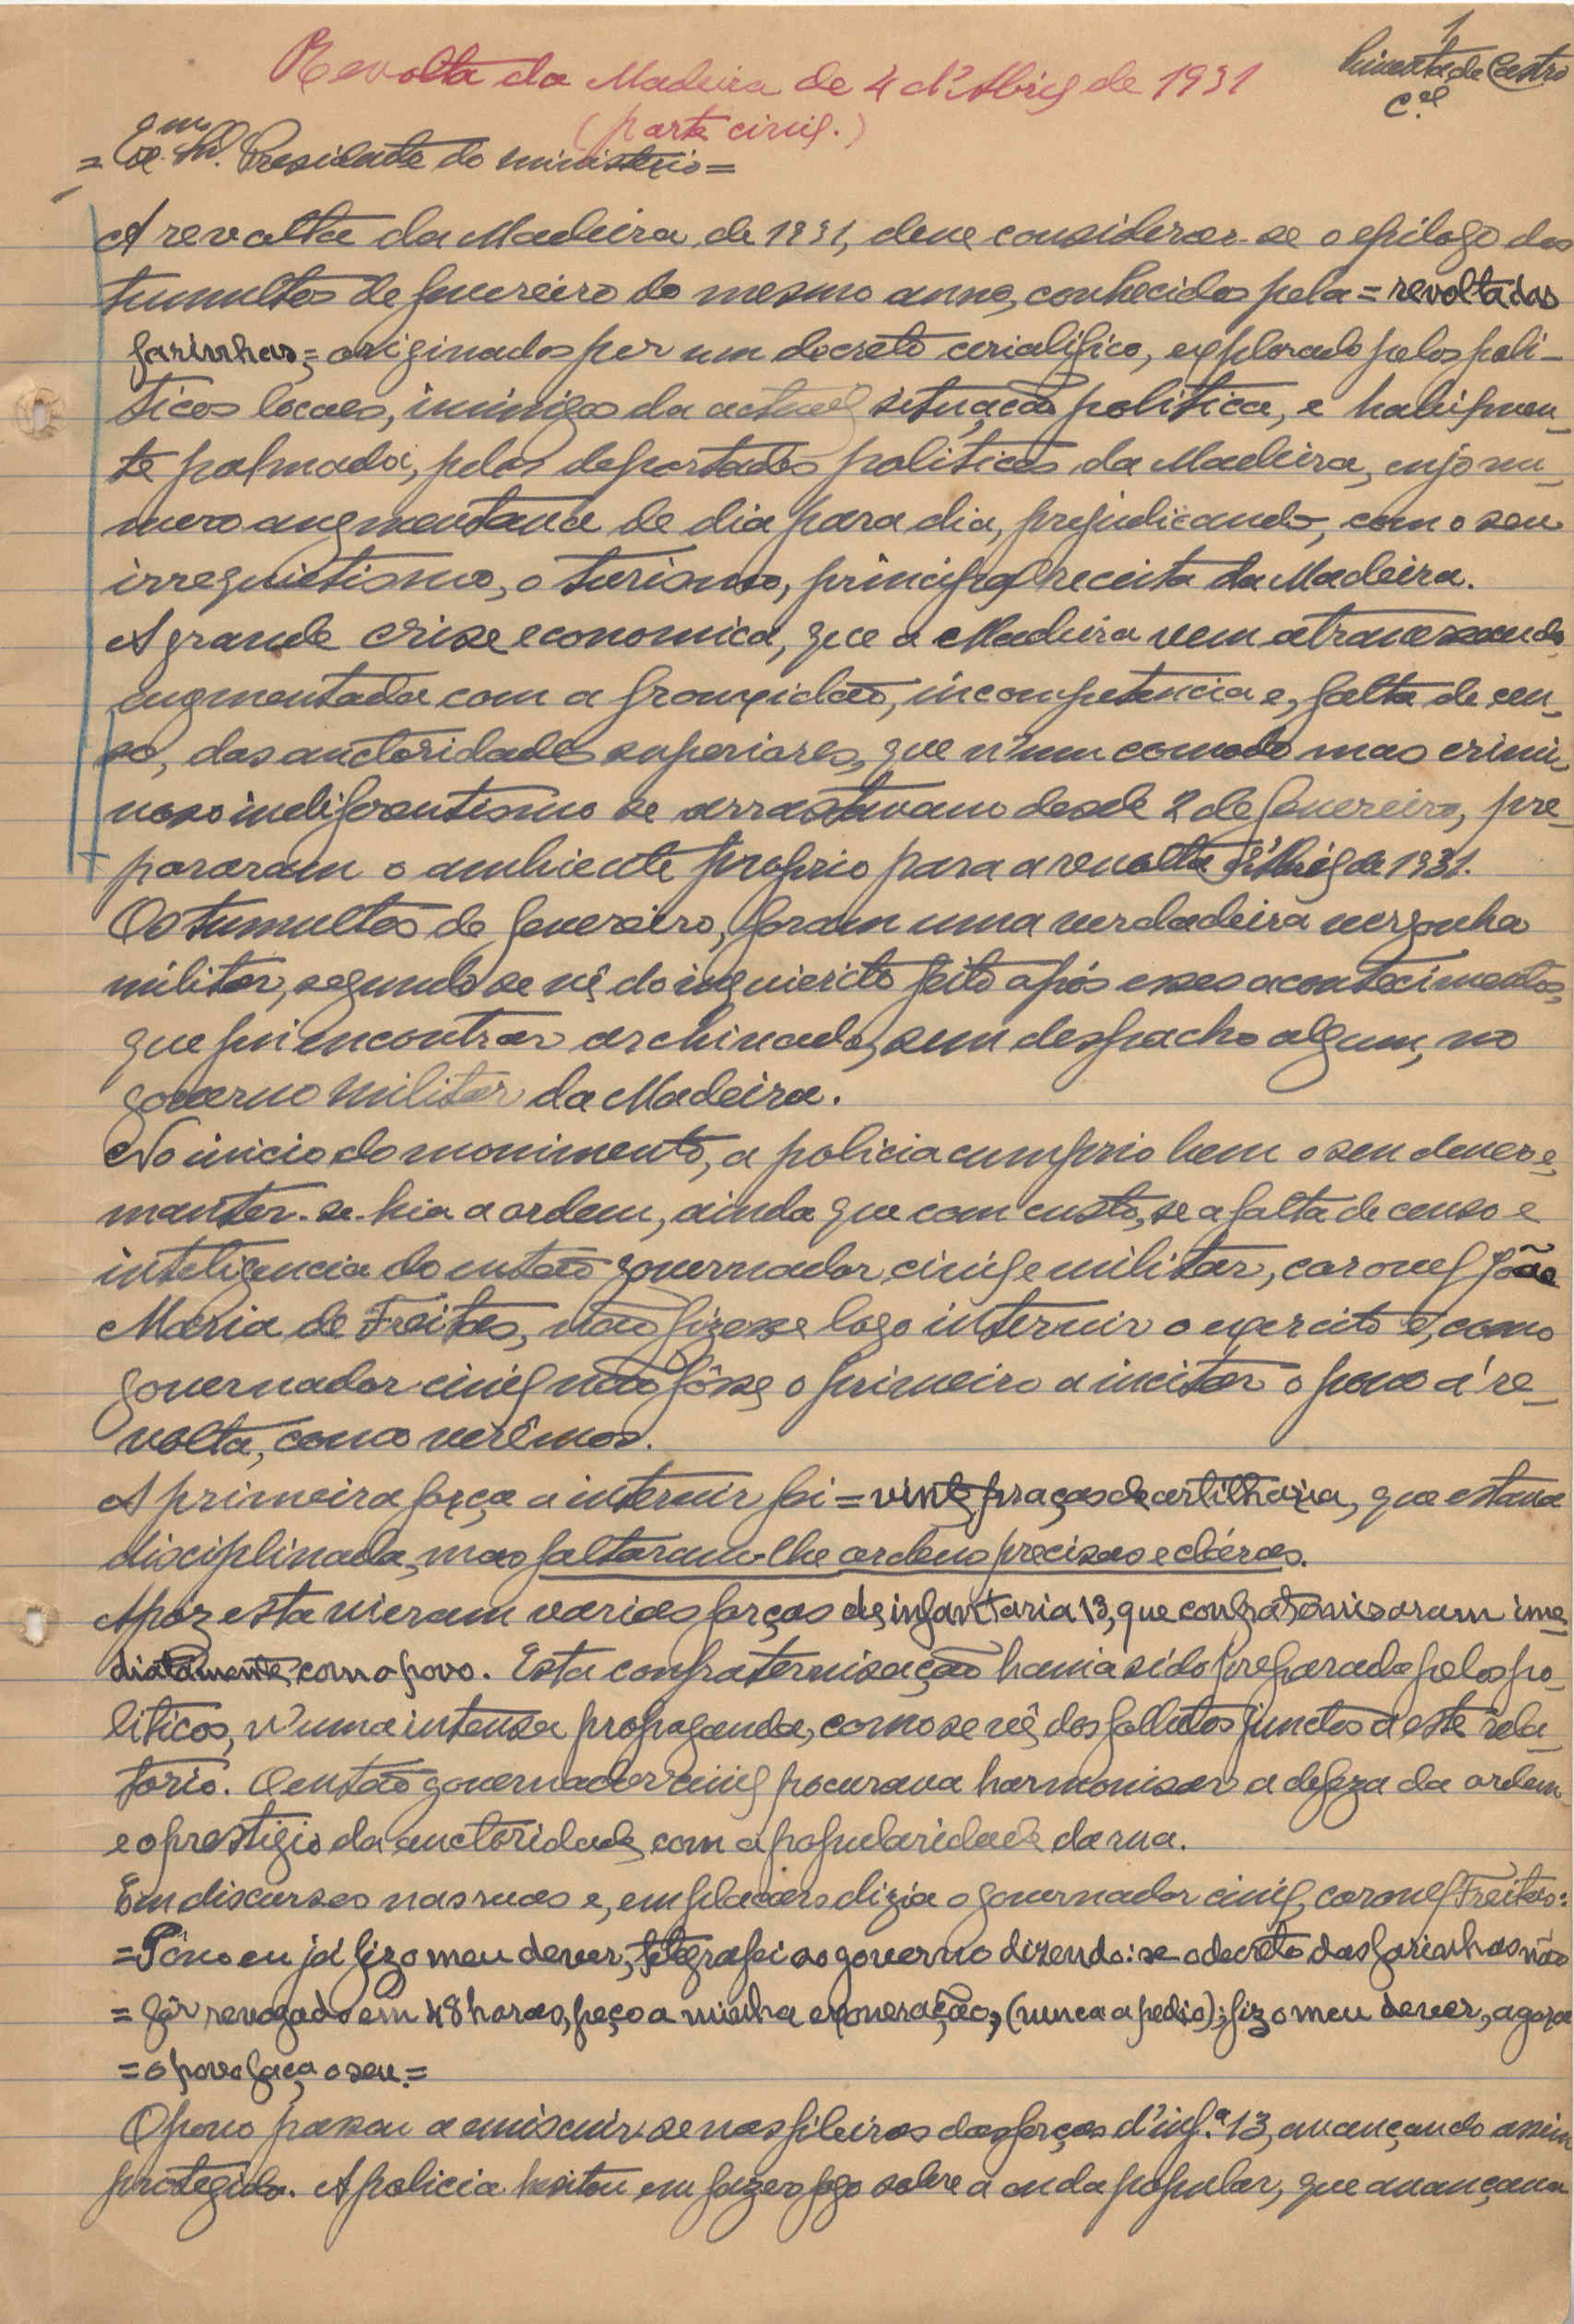 1
Revolta da Madeira de 4 d'Abril de 1931
Pimenta de Castro
C.el
(parte civil.)
= Exmo. Sr. Presidente do ministerio =
A revolta da Madeira, de 1931, deve considerar-se o epilogo dos
tumultos de fevereiro do mesmo anno, conhecidos pela = revolta das
farinhas = originados por um decreto cerialifico, explorado pelos poli-
ticos locaes, inimigos da actual situação politica, e habilmen-
te palmados, pelos deportados politicos da Madeira, cujo nu-
mero augmentava de dia para dia, prejudicando, com o seu
irrequietismo, o turismo, principal receita da Madeira.
A grande crise economica, que a Madeira vem atravessando,
augmentada com a frouxidão, incompetencia e, falta de cen-
so, das auctoridades superiores, que n'um comodo mas crimi-
noso indiferentismo se arrastavam desde 2 de fevereiro, pre-
pararam o ambiente proprio para a revolta d'Abril de 1931.
Os tumultos de fevereiro, foram uma verdadeira vergonha
militar, segundo se vê do inquierito feito após esses acontecimentos,
que fui encontrar archivado, sem despacho algum, no
governo militar da Madeira.
No inicio do movimento, a policia cumprio bem o seu dever e,
manter-se-hia a ordem, ainda que com custo, se a falta de censo e
inteligencia do então governador, civil e militar, coronel João
Maria de Freitas, não fizesse logo intervir o exercito e, como
governador civil não fôsse o primeiro a incitar o povo á re-
volta, como verêmos.
A primeira força a intervir foi = vinte praças de artilharia, que estava
disciplinada, mas faltaram-lhe ordens precisas e cláras.
Apoz esta vieram varias forças de infantaria 13, que confraternisaram ime-
diatamente com o povo. Esta confraternisação havia sido preparada pelos po-
liticos, n'uma intensa propaganda, como se vê dos folhetos junctos a este rela-
torio. O então governador civil procurava harmonisar a defeza da ordem
e o prestigio da auctoridade, com a popularidade da rua.
Em discursos nas ruas e, em placards dizia o governador civil, coronel Freitas:
= Pôvo eu já fiz o meu dever, telegrafei ao governo dizendo: se o decreto das farinhas não
= fôr revogado em 48 horas, peço a minha exoneração, (nunca a pedio); fiz o meu dever, agora
= o povo faça o seu. =
O povo passou a emiscuir-se nas fileiras das forças d'inf.ª 13, avançando assim
protegido. A policia hesitou em fazer fogo sobre a onda popular, que avançava